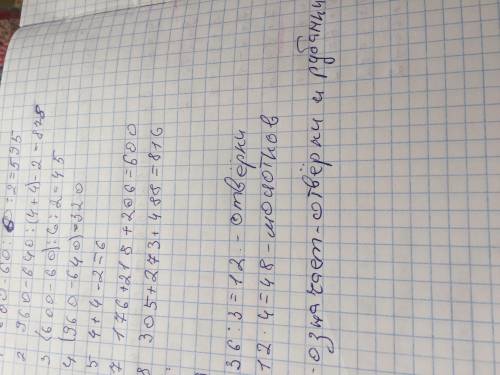 -60:6:2=595
2 960-640:(4+4)-2=878
3 (600-60):6:2=45
4 (960-640)=320
5 4+4-2=6
7 176+218+206=600
8 305+273+488=816
36:3=12 - отвёрки
12·4=48-молотков
-означает-отвёрки и рубанки